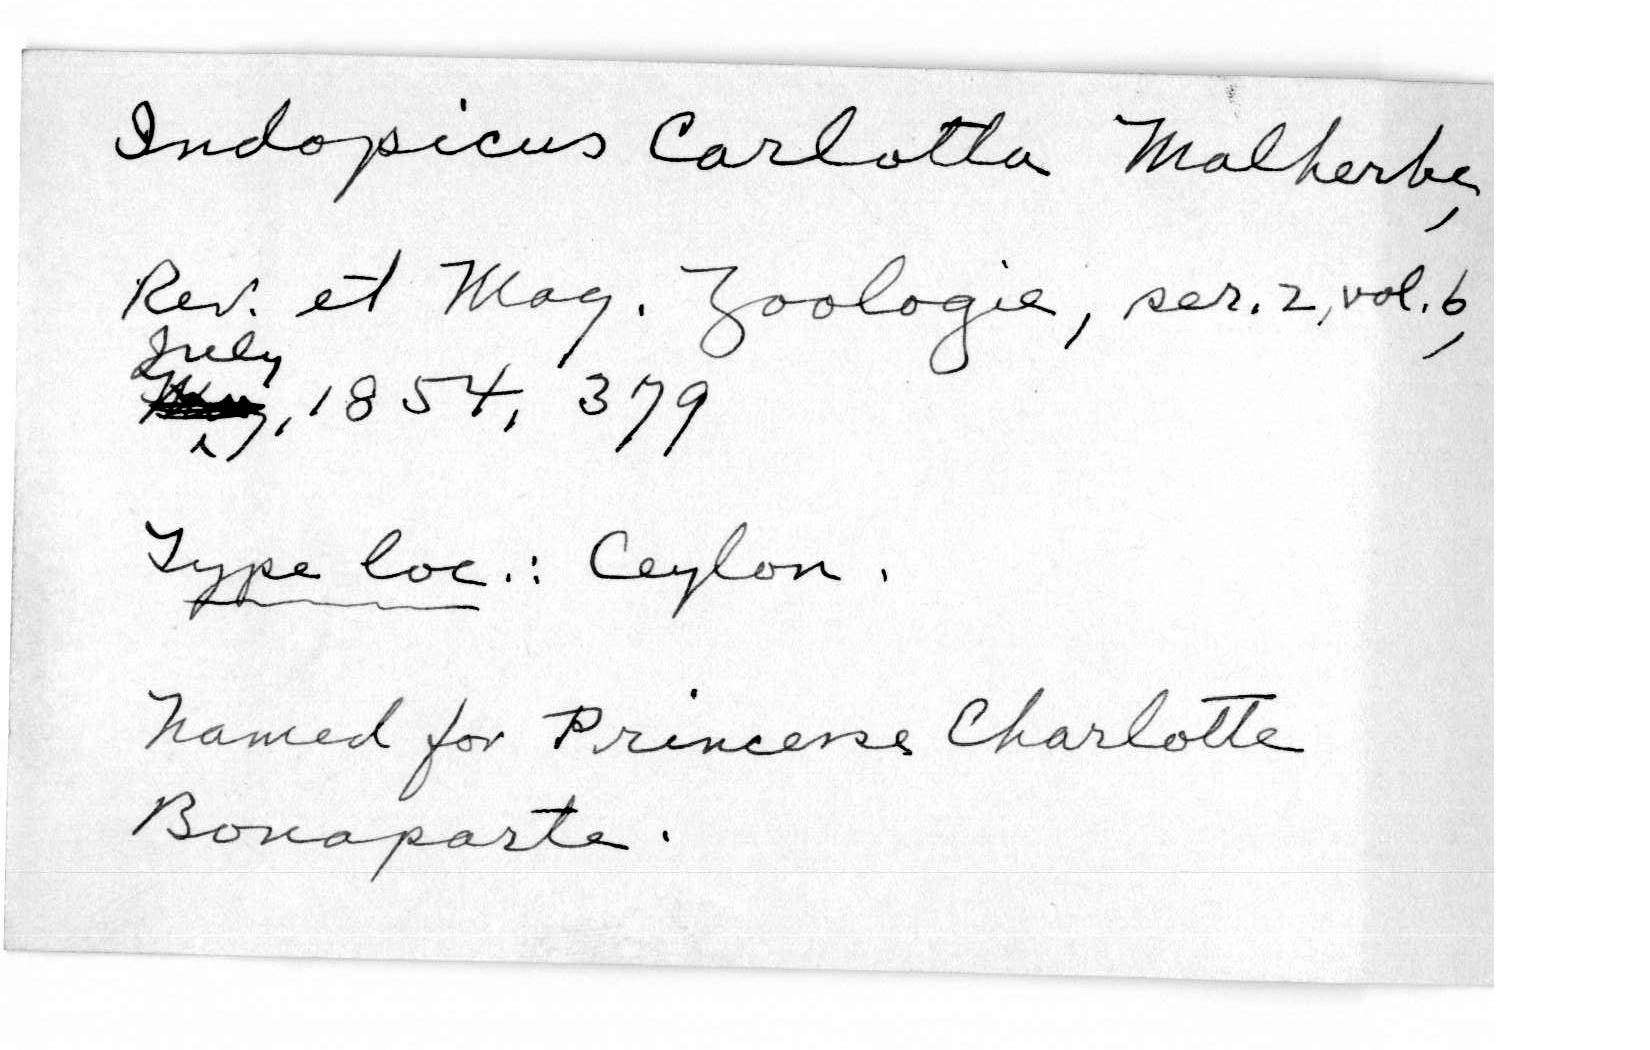 Indopicus Carlotta Malherbe,
Rev. et Mag. Zoologie, ser. 2, vol. 6,
July
, 1854, 379
Type loc.: Ceylon.
Named for Princess Charlotte
Bonaparte.